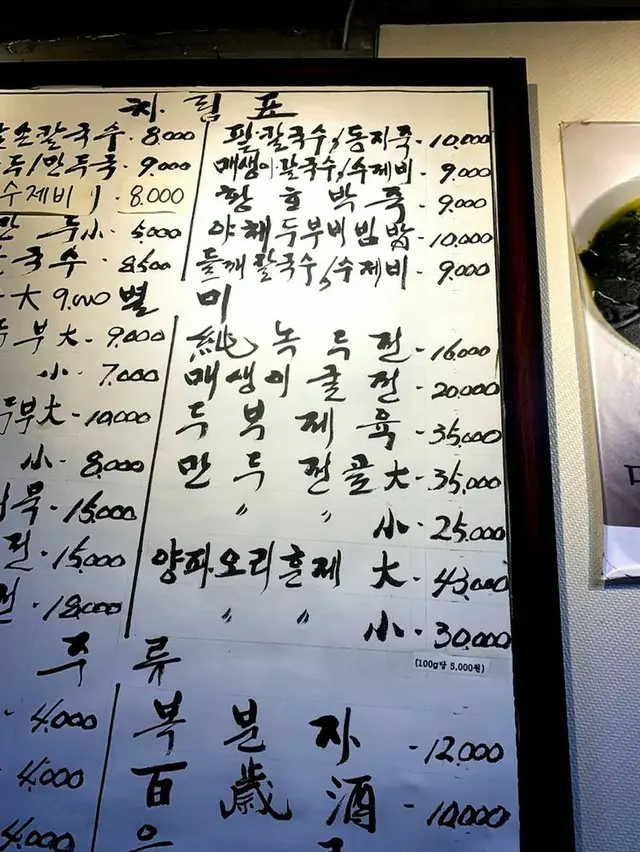 차림표
손칼국수·8,000
만두국·9,000
수제비 8,000
두小·5,000
국수·8,500
大 9,000
부大·9,000
小·7,000
두부大·10,000
小·8,000
묵·15,000
전·15,000
전·18,000
팥·칼국수/동지죽·10,000
매생이·칼국수/수제비·9,000
단호박죽·9,000
야채두부비빔밥·10,000
들깨칼국수/수제비·9,000
별미
純녹두전·16,000
매생이굴전·20,000
두부제육·35,000
만두전골大·35,000
〃 〃 小·25,000
양파오리훈제 大·43,000
〃 〃 小·30,000
(100g당 5,000원)
주류
·4,000
4,000
4,000
복분자·12,000
百歲酒·10,000